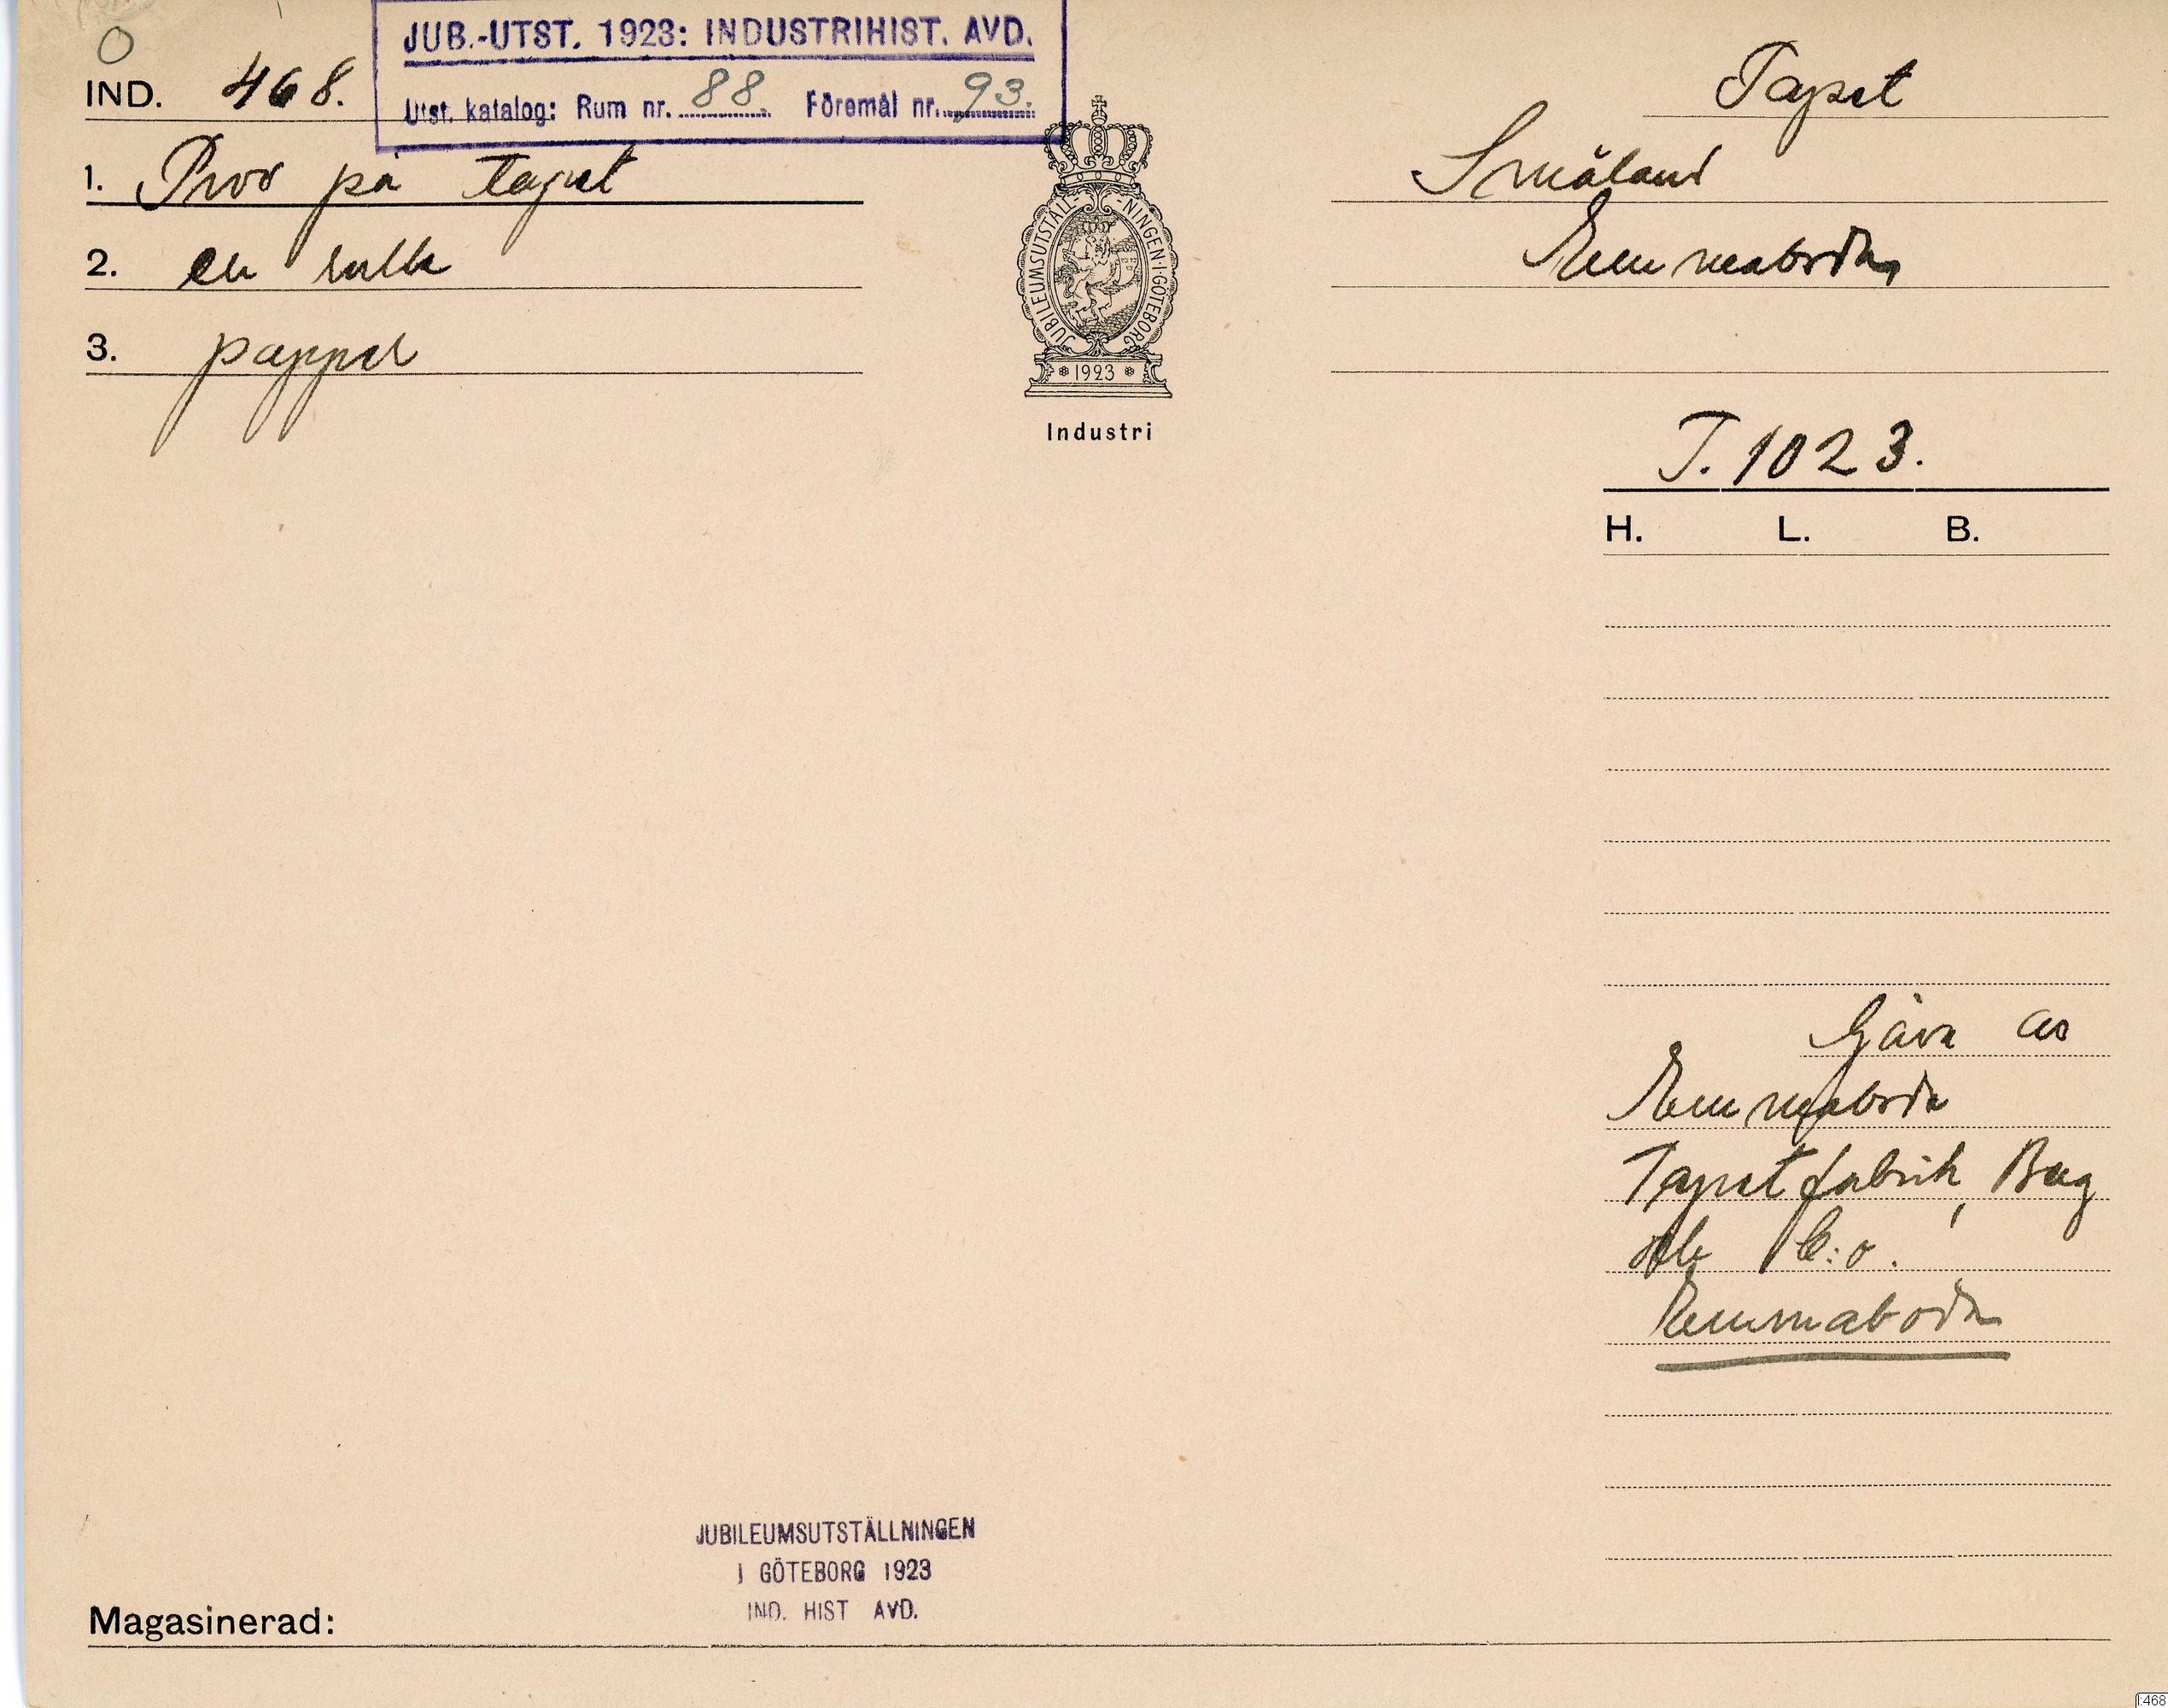 O
JUB.-UTST. 1923: INDUSTRIHIST. AVD.
Utst. katalog: Rum nr. 88. Föremål nr. 93.
IND. 468.
1. Prov på tapet
2. en rulle
3. papper
JUBILEUMSUTSTÄLLNINGEN·I·GÖTEBORG
1923
Industri
Tapet
Småland
Emmaboda
T. 1023.
H. L. B.
Gåva av
Emmaboda
Tapetfabrik, Berg
och C:o.
Emmaboda
JUBILEUMSUTSTÄLLNINGEN
I GÖTEBORG 1923
IND. HIST AVD.
Magasinerad:
I:468